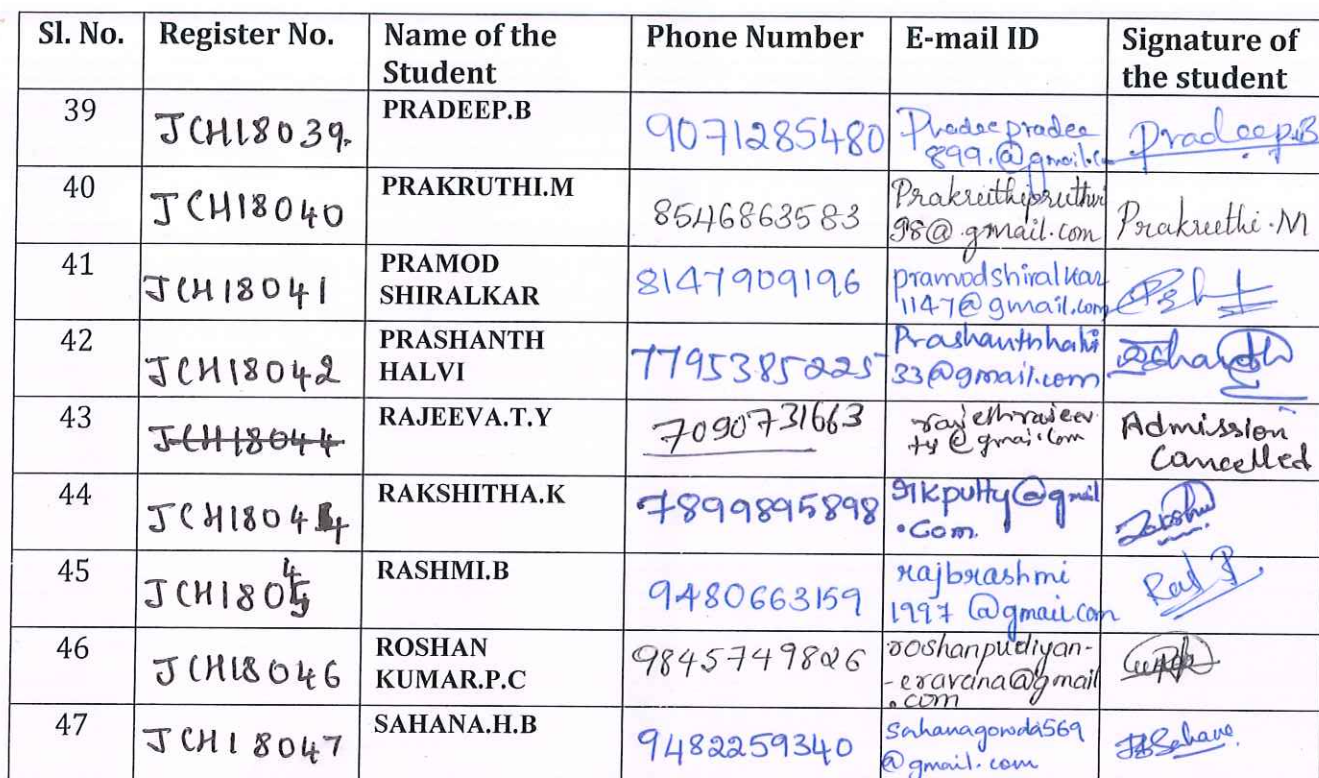 Sl. No. Register No. Name of the Student Phone Number E-mail ID Signature of the student
39 JCH18039. PRADEEP.B 9071285480 Pradeepradee
899.@gmail.c Pradeep.B
40 JCH18040 PRAKRUTHI.M 8546863583 Prakruthipruthvi
98@gmail.com Prakruthi.M
41 JCH18041 PRAMOD SHIRALKAR 8147909196 pramodshiralkar
1147@gmail.com
42 JCH18042 PRASHANTH HALVI 7795385225 Prashanthhalvi
33@gmail.com
43 JCH18044 RAJEEVA.T.Y 7090731663
ty@gmai.com Admission Cancelled
44 JCH18044 RAKSHITHA.K 7899895898 rkputty@gmail
.Com.
45 JCH18045 RASHMI.B 9480663159 rajbrashmi
1997@gmail.com
46 JCH18046 ROSHAN KUMAR.P.C 9845749826 roshanpudiyan-
-eravana@gmail
.com
47 JCH18047 SAHANA.H.B 9482259340 Sahanagowda569
@gmail.com Sahana